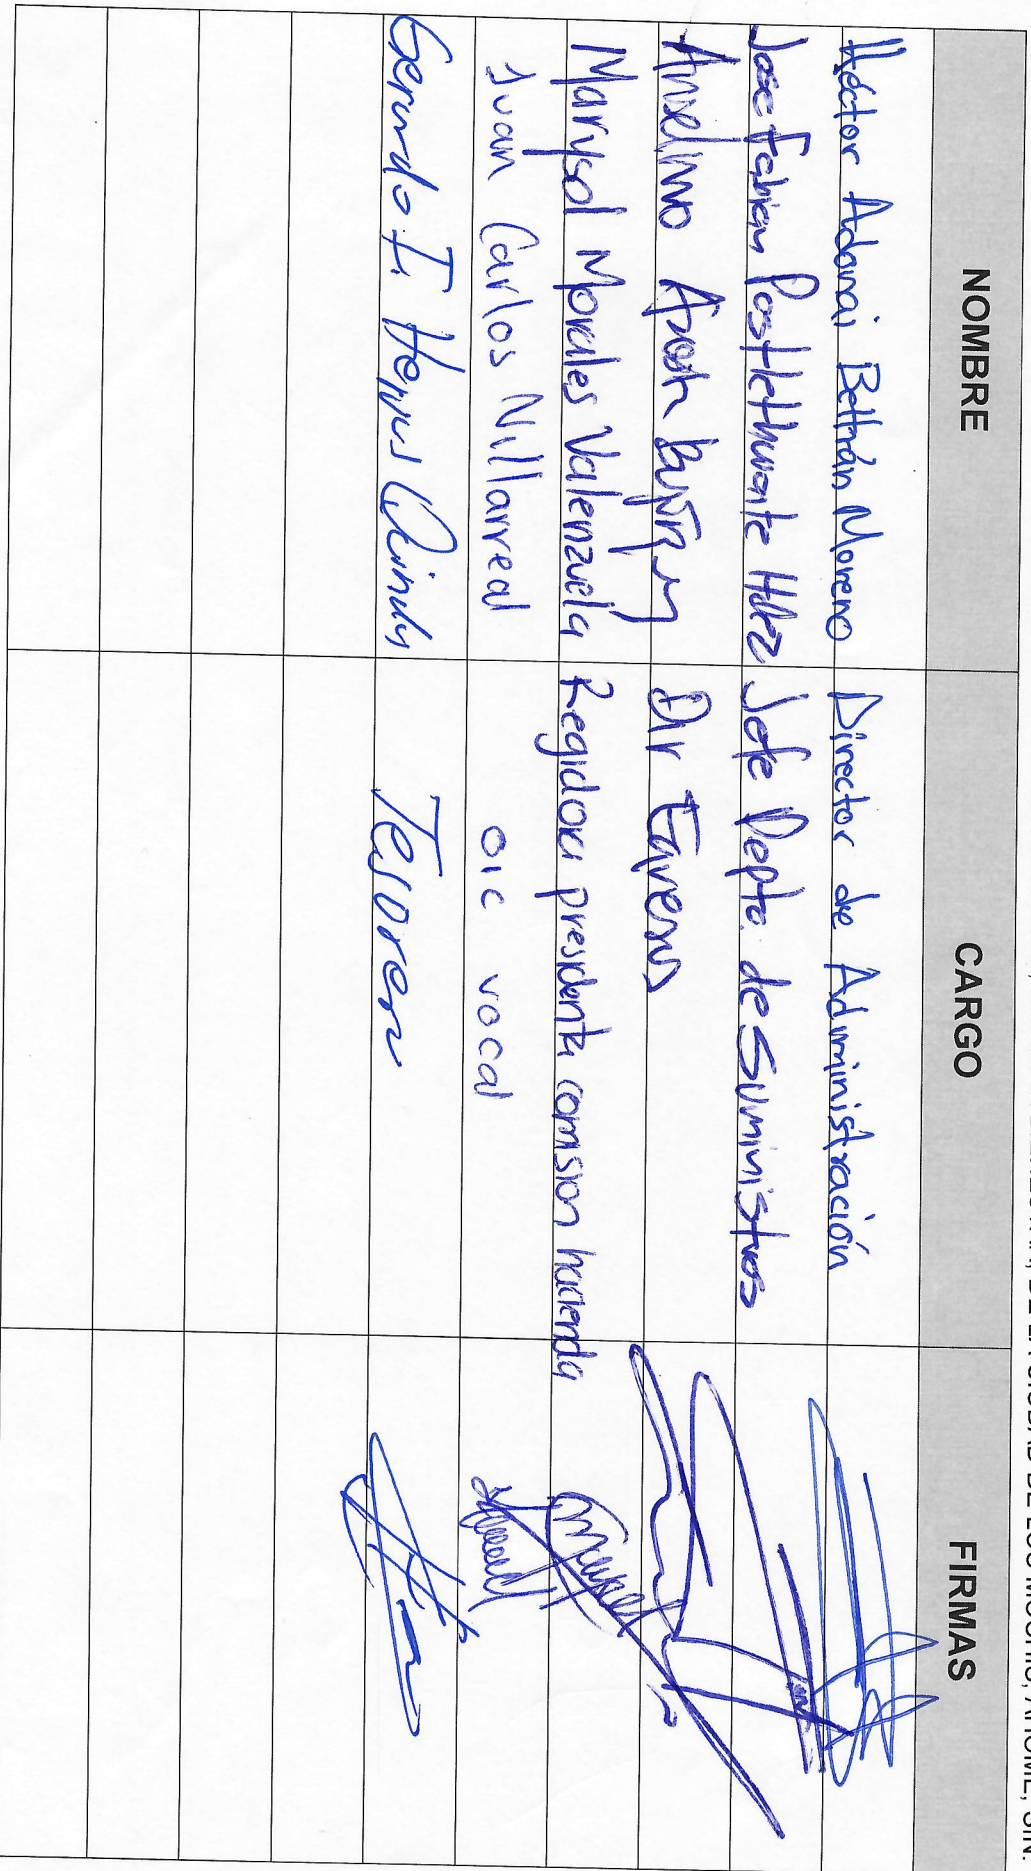 DE LA CIUDAD DE LOS MOCHIS, AHOME, SIN.
NOMBRE CARGO FIRMAS
Héctor Adonai Beltrán Moreno Director de Administración
Jose Fabian Postlethwaite Hdez Jefe Depto. de Suministros
Anselmo Dir Egresos
Marysol Morales Valenzuela Regidora presidenta comision hacienda
Juan Carlos Villarreal OIC vocal
Gerardo I. Tesorero